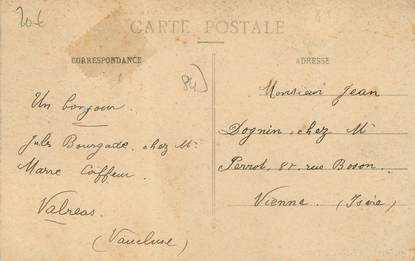 20€
CARTE POSTALE
CORRESPONDANCE
ADRESSE
84
Un bonjour.
Jules Bourgade chez Mr
Marre Coiffeur.
Valreas.
(Vaucluse)
Monsieur Jean
Dognin chez Mr
Perrot, 8 rue Boson.
Vienne (Isère)